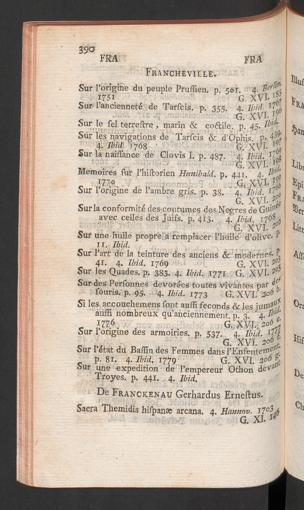 390
FRA FRA
FRANCHEVILLE.
Sur l'origine du peuple Prussien. p. 501. 4. Berolin.
1751 G. XVI. 185
Sur l'ancienneté de Tarscis. p. 355. 4. Ibid.
G. XVI. 196
Sur le sel terrestre, marin & coctile. p. 45. Ibid.
Sur les navigations de Tarscis & d'Ophir. p.
4. Ibid. 1768 G. XVI.
Sur la naissance de Clovis I. p. 487. 4. Ibid.
G. XVI.
Memoires sur l'historien Hunibald. p. 441. 4. Ibid.
G. XVI.
Sur l'origine de l'ambre gris. p. 38. 4. Ibid.
G. XVI.
Sur la conformité des coutumes des Negres de Guinée
avec celles des Juifs. p. 413. 4. Ibid. 1768
G. XVI. 202
Sur une huile propre à remplacer l'huile d'olive. p.
11. Ibid.
Sur l'art de la teinture des anciens & modernes. p.
41. 4. Ibid. 1769 G. XVI. 203
Sur les Quades. p. 383. 4. Ibid. 1771 G. XVI. 205
Sur des Personnes devorées toutes vivantes par des
souris. p. 95. 4. Ibid. 1773 G. XVI. 206
Si les accouchemens sont aussi feconds & les jumeaux
aussi nombreux qu'anciennement. p. 3. 4. Ibid.
1776 G. XVI. 206
Sur l'origine des armoiries. p. 537. 4. Ibid.
G. XVI. 206
Sur l'état du Bassin des Femmes dans l'Enfentement.
p. 81. 4. Ibid. 1779 G. XVI. 206
Sur une expedition de l'empereur Othon devant
Troyes. p. 441. 4. Ibid.
De FRANCKENAU Gerhardus Ernestus.
Sacra Themidis hispanæ arcana. 4. Hannov. 1703
G. XI.